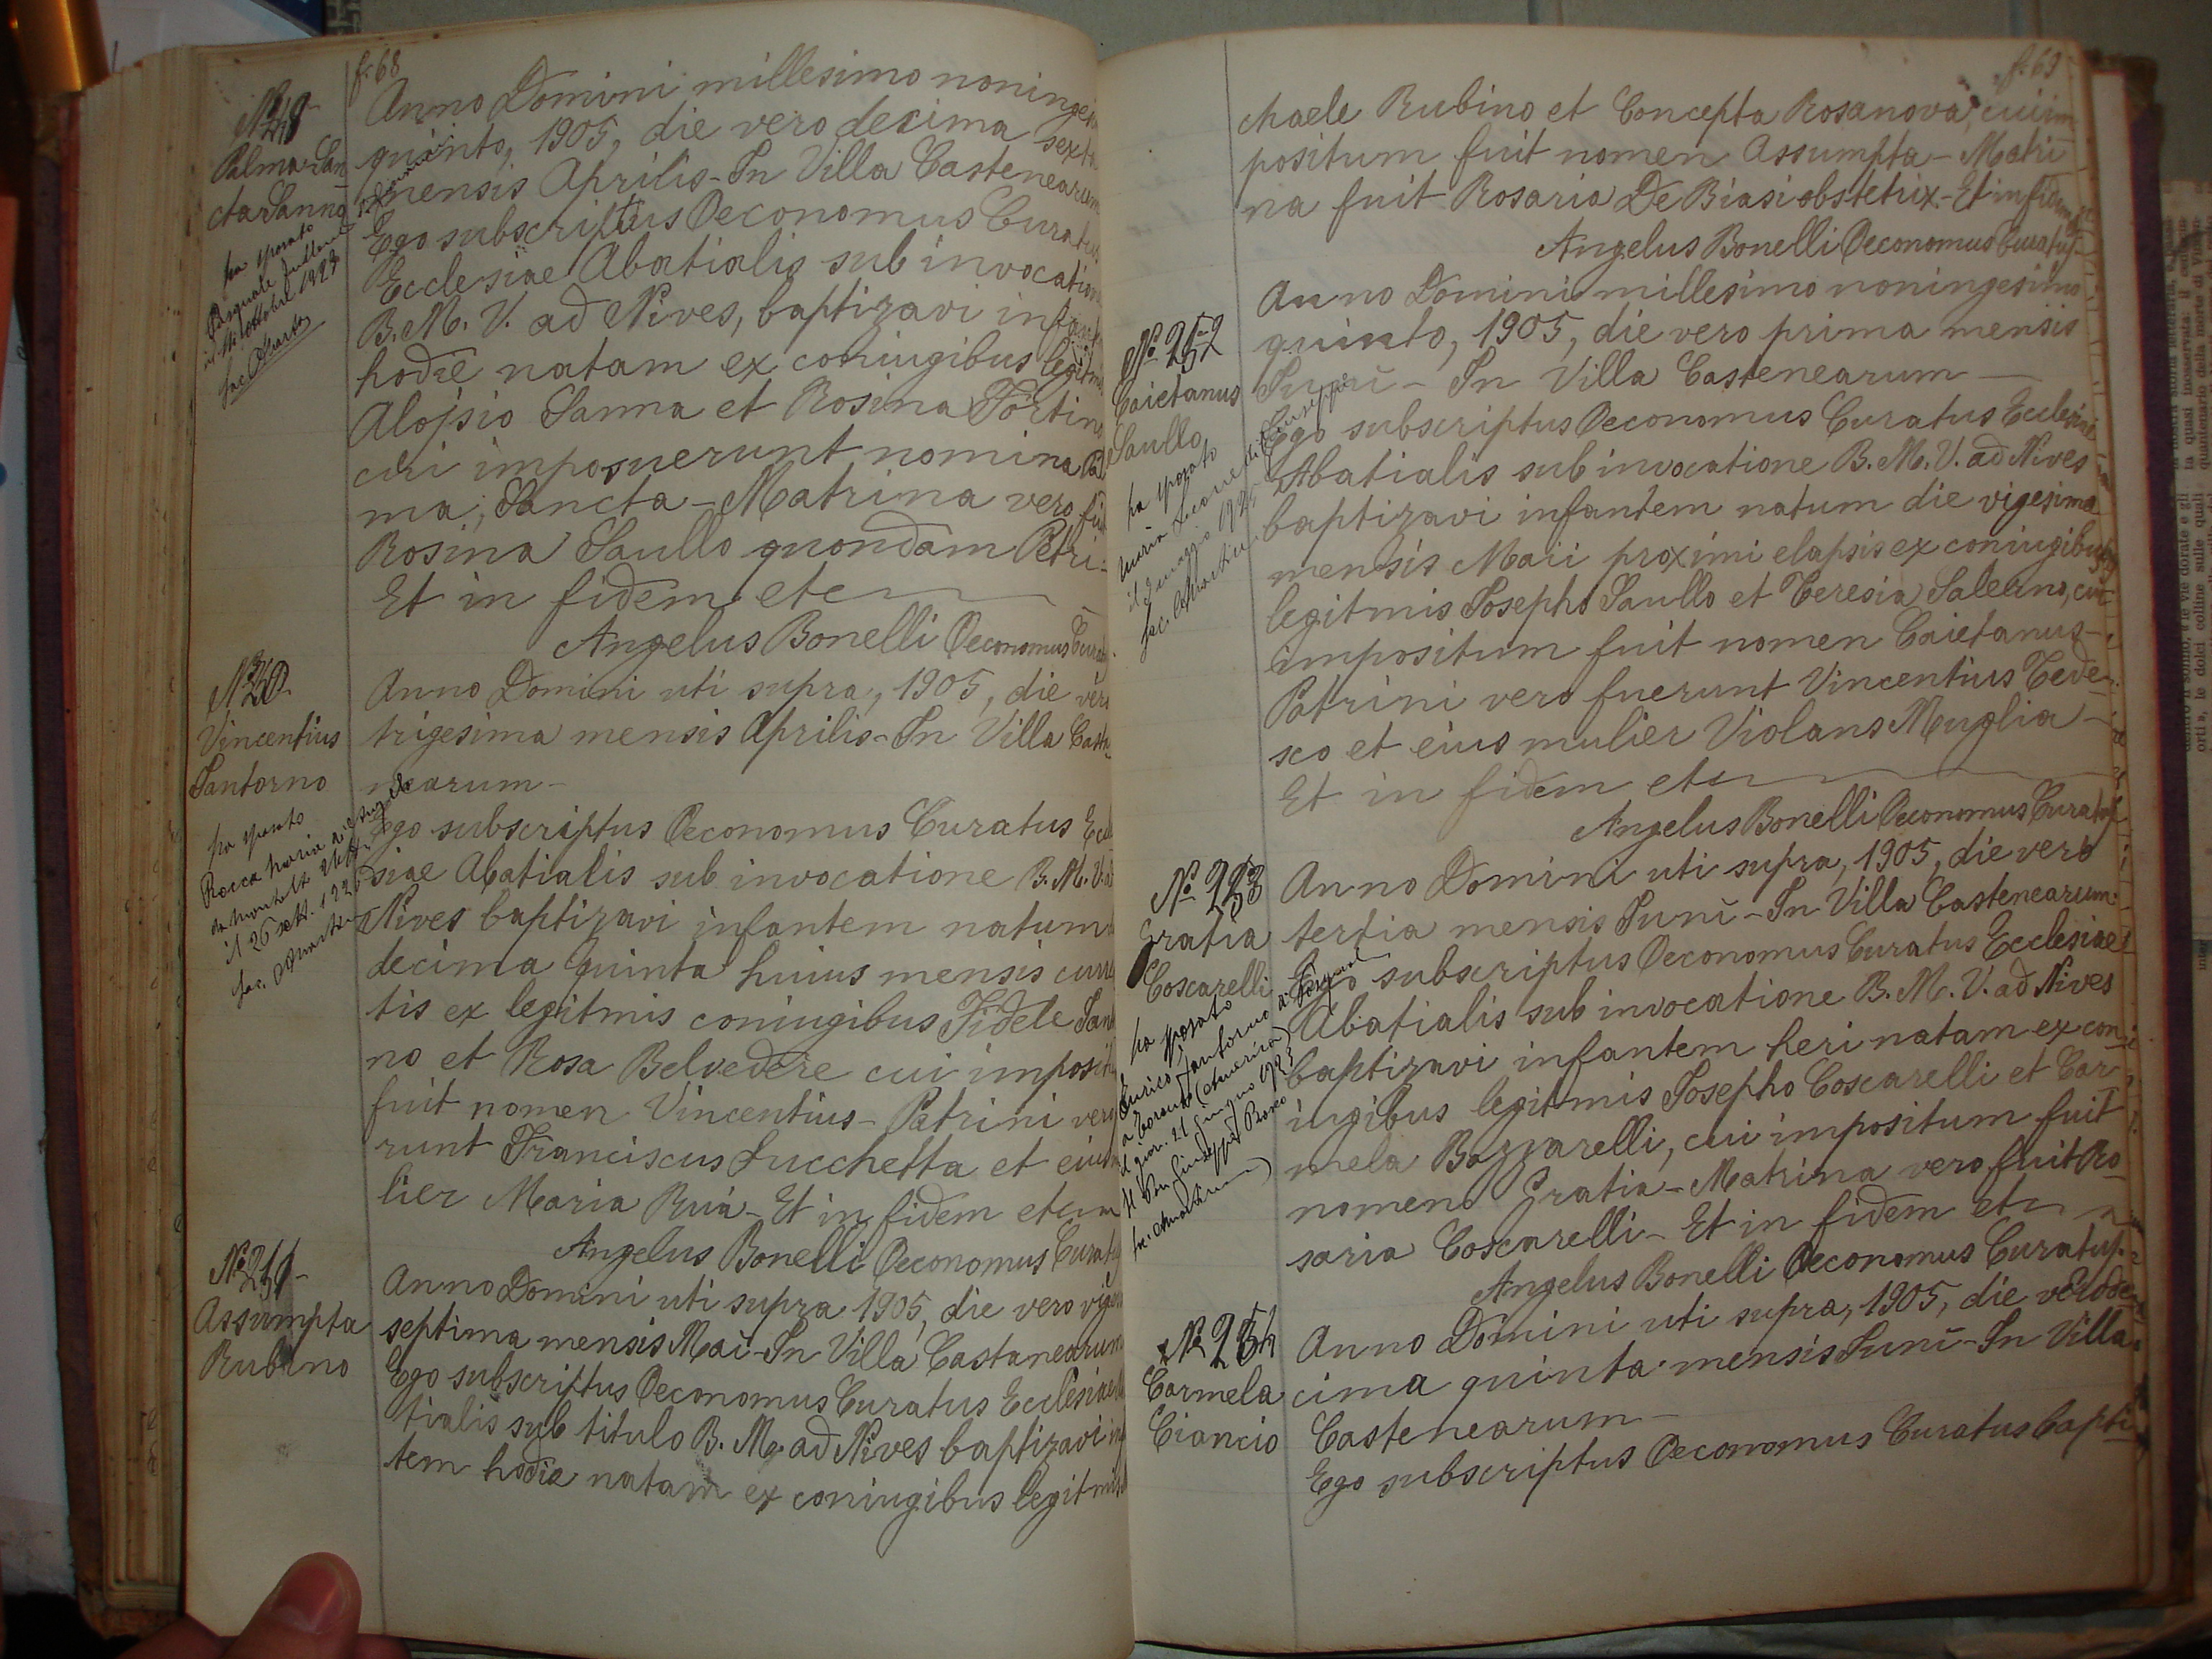 f. 68
Palma San
cta Sanna
ha sposato
Pasquale
ottobre 1923
Anno Domini millesimo noninges
quinto, 1905, die vero decima sexta
mensis Aprilis - In Villa Castenearum
Ego subscriptus Oeconomus Curatus
Ecclesiae Abatialis sub invocation
B. M. V. ad Nives, baptizavi infant
hodie natam ex coniugibus legitm
Aloysio Sanna et Rosina Fortin
cui imposuerunt nomina Pal
ma, Sancta - Matrina vero fuit
Rosina Saullo quondam Petri -
Et in fidem etc
Angelus Bonelli Oeconomus Curat
Nº 250
Vincentius
Santorno
ha sposato
Rocca Maria
da Montalto Uff.
il 26 sett. 1926
Anno Domini uti supra, 1905, die vero
trigesima mensis Aprilis - In Villa Casta
nearum -
Ego subscriptus Oeconomus Curatus Eccle
siae Abatialis sub invocatione B. M. V. ad
Nives baptizavi infantem natum
decima quinta huius mensis curre
tis ex legitmis coniugibus Fidele San
no et Rosa Belvedere cui imposit
fuit nomen Vincentius - Patrini vero
runt Franciscus Lucchetta et eius
lier Maria Ruà - Et in fidem etc
Angelus Bonelli Oeconomus Curatu
Nº 251
Assumpta
Rubino
Anno Domini uti supra 1905, die vero vige
septima mensis Mai - In Villa Castanearum
Ego subscriptus Oeconomus Curatus Ecclesiae
tialis sub titulo B. M. ad Nives baptizavi in
tem hodie natam ex coniugibus legitmis
f. 69
chaele Rubino et Concepta Rosanova, cui im
positum fuit nomen Assumpta - Matri
na fuit Rosaria De Biasi obstetrix - Et in fidem
Angelus Bonelli Oeconomus Curatus
Nº 252
Caietanus
Saullo
ha sposato
Maria
maggio
Anno Domini millesimo noningesimo
quinto, 1905, die vero prima mensis
Iunii - In Villa Castenearum
Ego subscriptus Oeconomus Curatus Ecclesiae
Abatialis sub invocatione B. M. V. ad Nives
baptizavi infantem natum die vigesima
mensis Maii proximi elapsis ex coniugibus
legitmis Iosepho Saullo et Teresia Salerno, cui
impositum fuit nomen Caietanus -
Patrini vero fuerunt Vincentius Tede
sco et eius mulier Violans Muglia -
Et in fidem etc
Angelus Bonelli Oeconomus Curatus
Nº 253
Gratia
Coscarelli
ha sposato
Enrico Santorno di Pasquale
a Toronto (America)
il gior. 21 giugno 1923
Anno Domini uti supra, 1905, die vero
tertia mensis Iunii - In Villa Castenearum
Ego subscriptus Oeconomus Curatus Ecclesiae
Abatialis sub invocatione B. M. V. ad Nives
baptizavi infantem heri natam ex con
iugibus legitmis Iosepho Coscarelli et Car
mela Bazzarelli, cui impositum fuit
nomen Gratia - Matrina vero fuit Ro
saria Coscarelli - Et in fidem etc
Angelus Bonelli Oeconomus Curatus
Nº 254
Carmela
Ciancio
Anno Domini uti supra, 1905, die vero de
cima quinta mensis Iunii - In Villa
Castenearum -
Ego subscriptus Oeconomus Curatus bapti